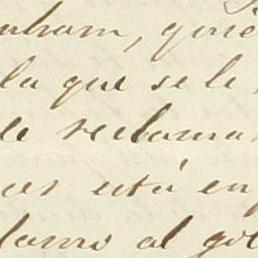 nham, quie
la que se le
de reclama
es está en
lamo al go